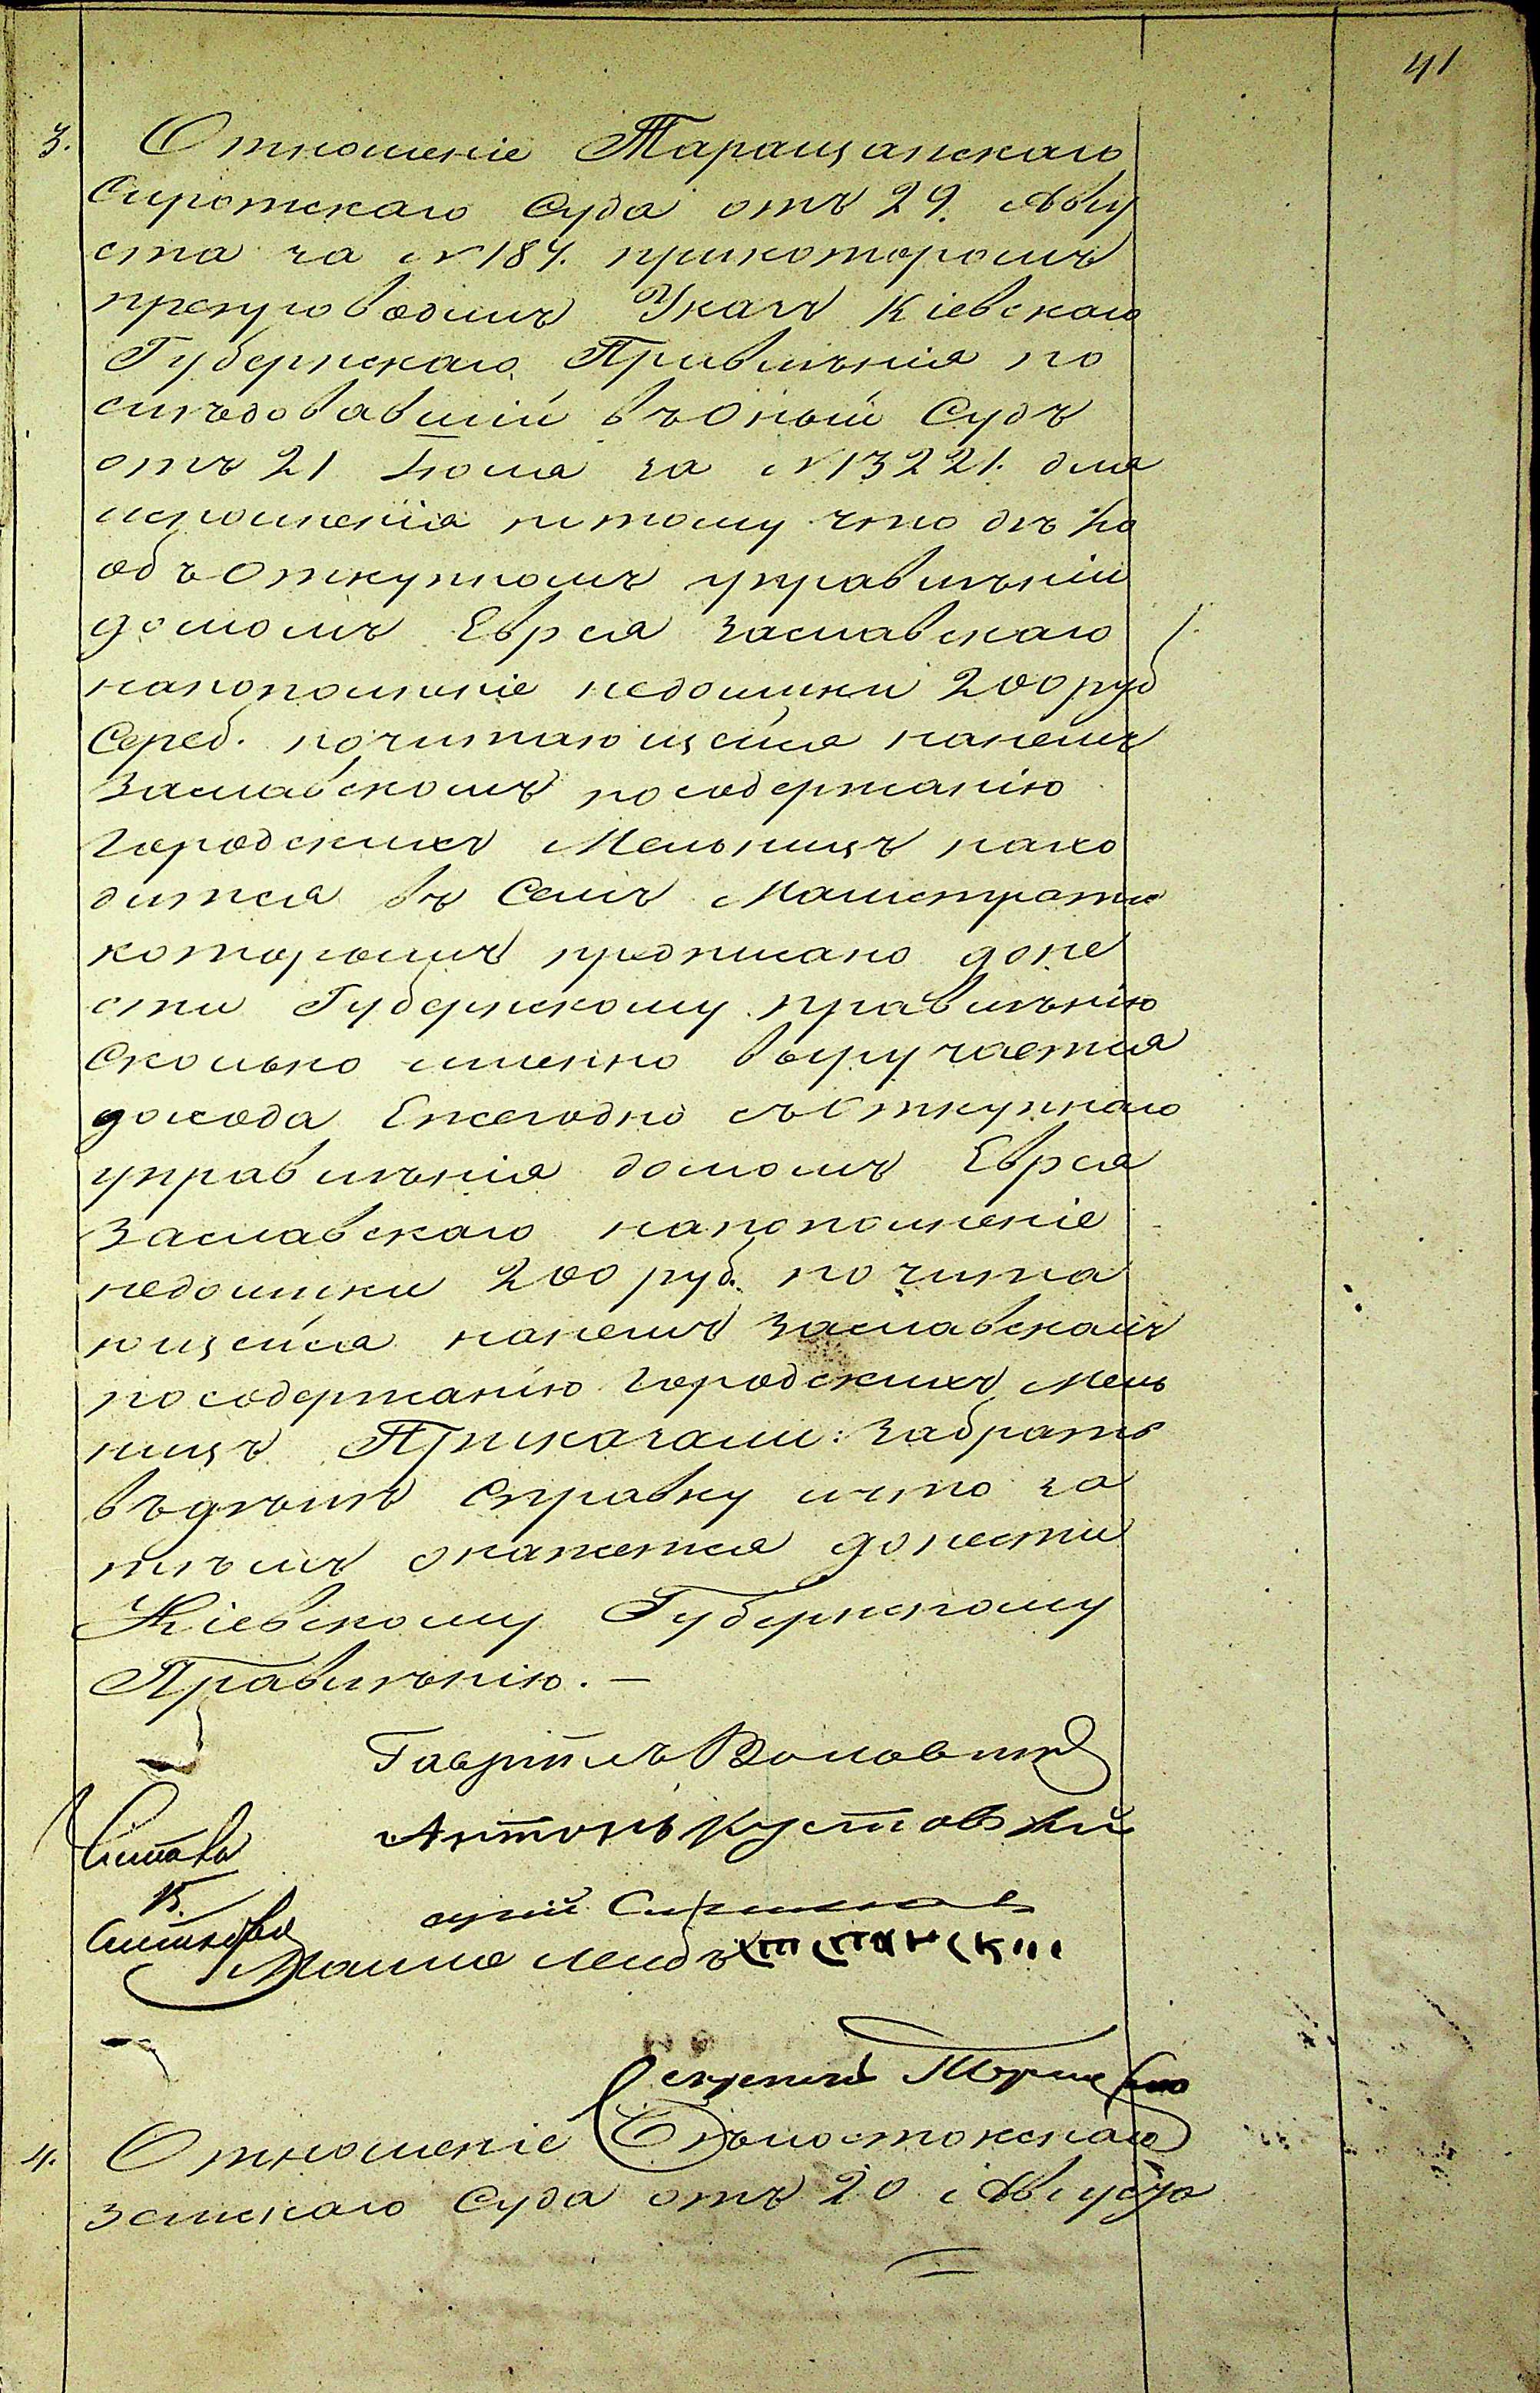 41
3. Отношеніе Таращанскаго
Сиротскаго Суда отъ 29. Авгу
ста за №184. прикоторомъ
препроводилъ Указъ Кіевскаго
Губернскаго Правленія по
слѣдовавшій въ Оный Судъ
отъ 21 Іюля за №13221. для
исполненія потому что дѣло
объ Откупномъ управленіи
домомъ Еврея Заславскаго
напополненіе недоимки 200 руб
Сереб. почитающейся нанемъ
Заславскомъ посодержанію
Городскихъ Мельницъ нахо
дится въ Семъ Магистратѣ
которымъ предписано доне
сти Губернскому правленію
Сколько именно выручается
дохода Ежегодно съ Откупнаго
управленія домомъ Еврея
Заславскаго напополненіе
недоимки 200 руб. почита
ющейся нанемъ Заславскомъ
посодержанію Городскихъ Мель
ницъ Приказали: Забрать
въ дѣлѣ Справку ичто за
тѣмъ окажется донести
Кіевскому Губернскому
Правленію. —
Гаврiилъ
Антонъ Кустовскій
Секретарь
4. Отношеніе
Земскаго Суда отъ 20 Августа